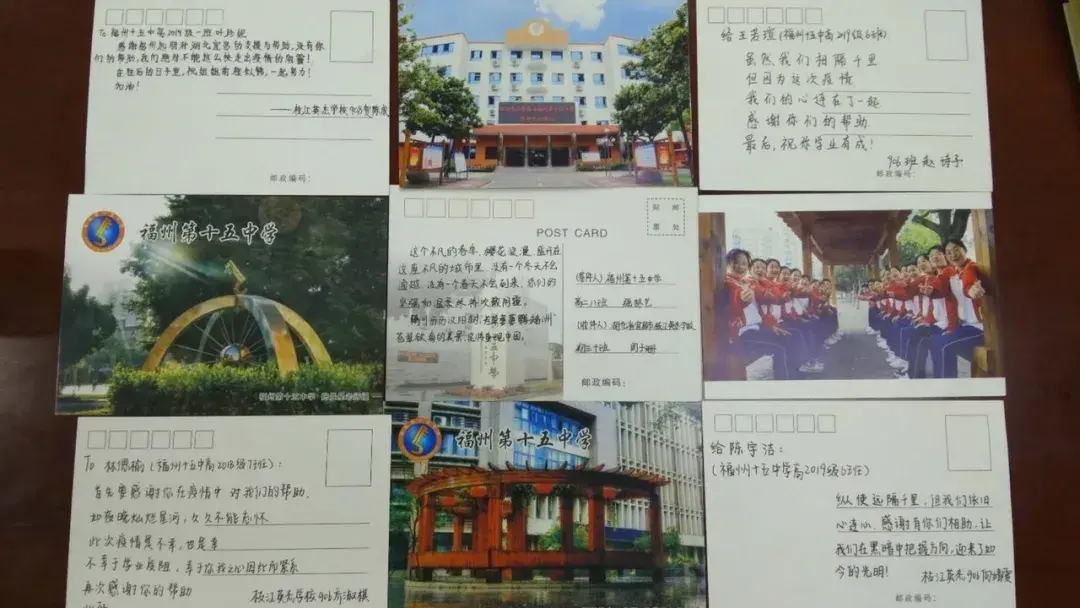 To 福州十五中高2019级一班叶珍妮
感谢福州朋友对湖北宜昌的支援与帮助,没有你
们的帮助,我们绝对不能这么快走出疫情的阴霾!
在往后的日子里,祝姐姐前程似锦,一起努力!
加油!
——枝江英杰学校903贺陈成
邮政编码:
给王若瑄(福州十五中高2019级6班)
虽然我们相隔千里
但因为这次疫情
我们的心连在了一起
感谢你们的帮助
最后,祝你学业有成!
906班赵诗予
邮政编码:
福州第十五中学
福州第十五中学
POST CARD
贴 邮
票 处
这个不凡的春季,樱花浪漫,盛开在
这座不凡的城市里,没有一个冬天不会
逾越,没有一个春天不会到来,你们的
坚强和温柔终将收到
晴川历历汉阳树,芳草萋萋鹦鹉洲
(寄件人)福州第十五中学
高二八班
(收件人)湖北省宜昌市枝江英杰学校
初三十班
邮政编码:
To 林偲榆(福州十五中高2018级7班):
首先要感谢你在疫情中对我们的帮助.
如夜晚灿烂星河,久久不能忘怀
此次疫情是不幸,也是幸
不幸于学业疾阻,幸于你我之心因此而紧系
再次感谢你的帮助
枝江英杰学校906
福州第十五中学
给陈宇洁:
(福州十五中学高2019级6班)
纵使远隔千里,但我们依旧
心连心.感谢有你们相助,让
我们在黑暗中把握方向,迎来了如
今的光明!
枝江英杰906向婧雯
邮政编码: